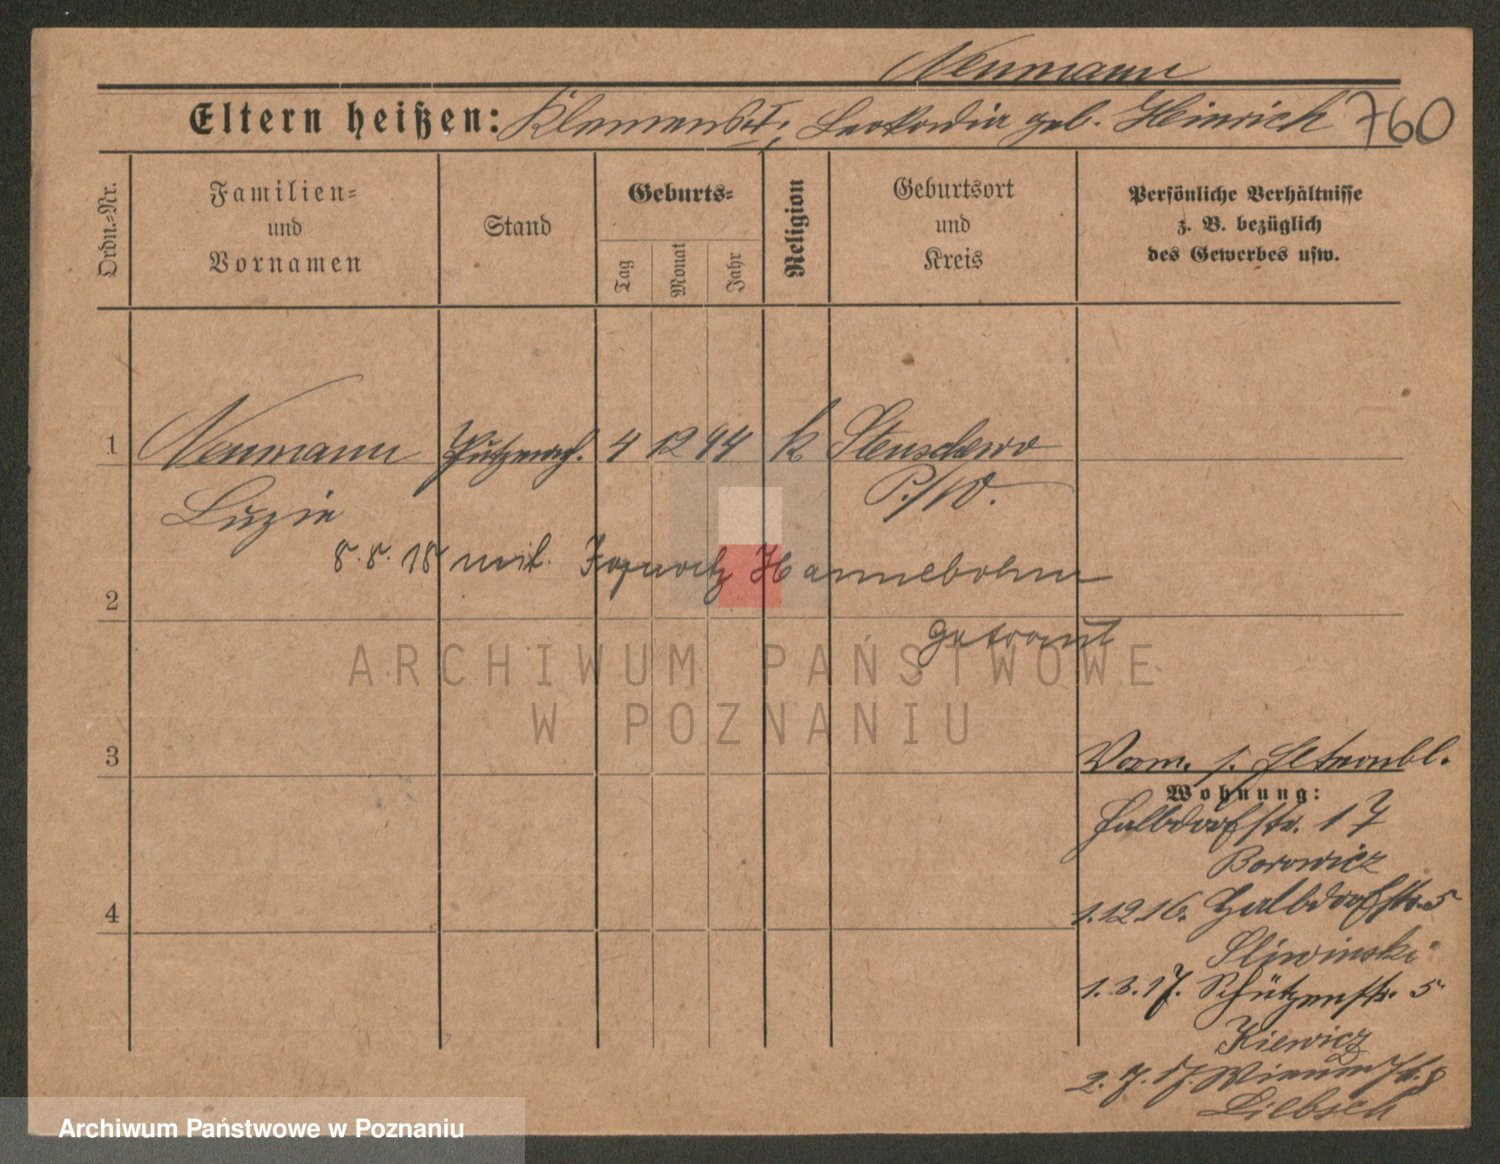 Neumann
Eltern heißen: Klemens †, Leokadia geb. Heinrich 760
Ordn.-Nr.
Familien-
und
Vornamen
Stand
Geburts-
Tag
Monat
Jahr
Religion
Geburtsort
und
Kreis
Persönliche Verhältnisse
z. B. bezüglich
des Gewerbes usw.
1 Neumann Putzmach. 4 12 94 k Stenschewo
Luzie P./W.
8.8.18 mit Hannebohm
2
getraut
ARCHIWUM PAŃSTWOWE
W POZNANIU
3
Vorm. s.
Wohnung:
Halbdorfstr. 17
Borowicz
4 1.12.16. Halbdorfstr. 5
Sliwinski
1.3.17. Schützenstr. 5
Kiewicz
2.7.17. 8
Liebsch
Archiwum Państwowe w Poznaniu